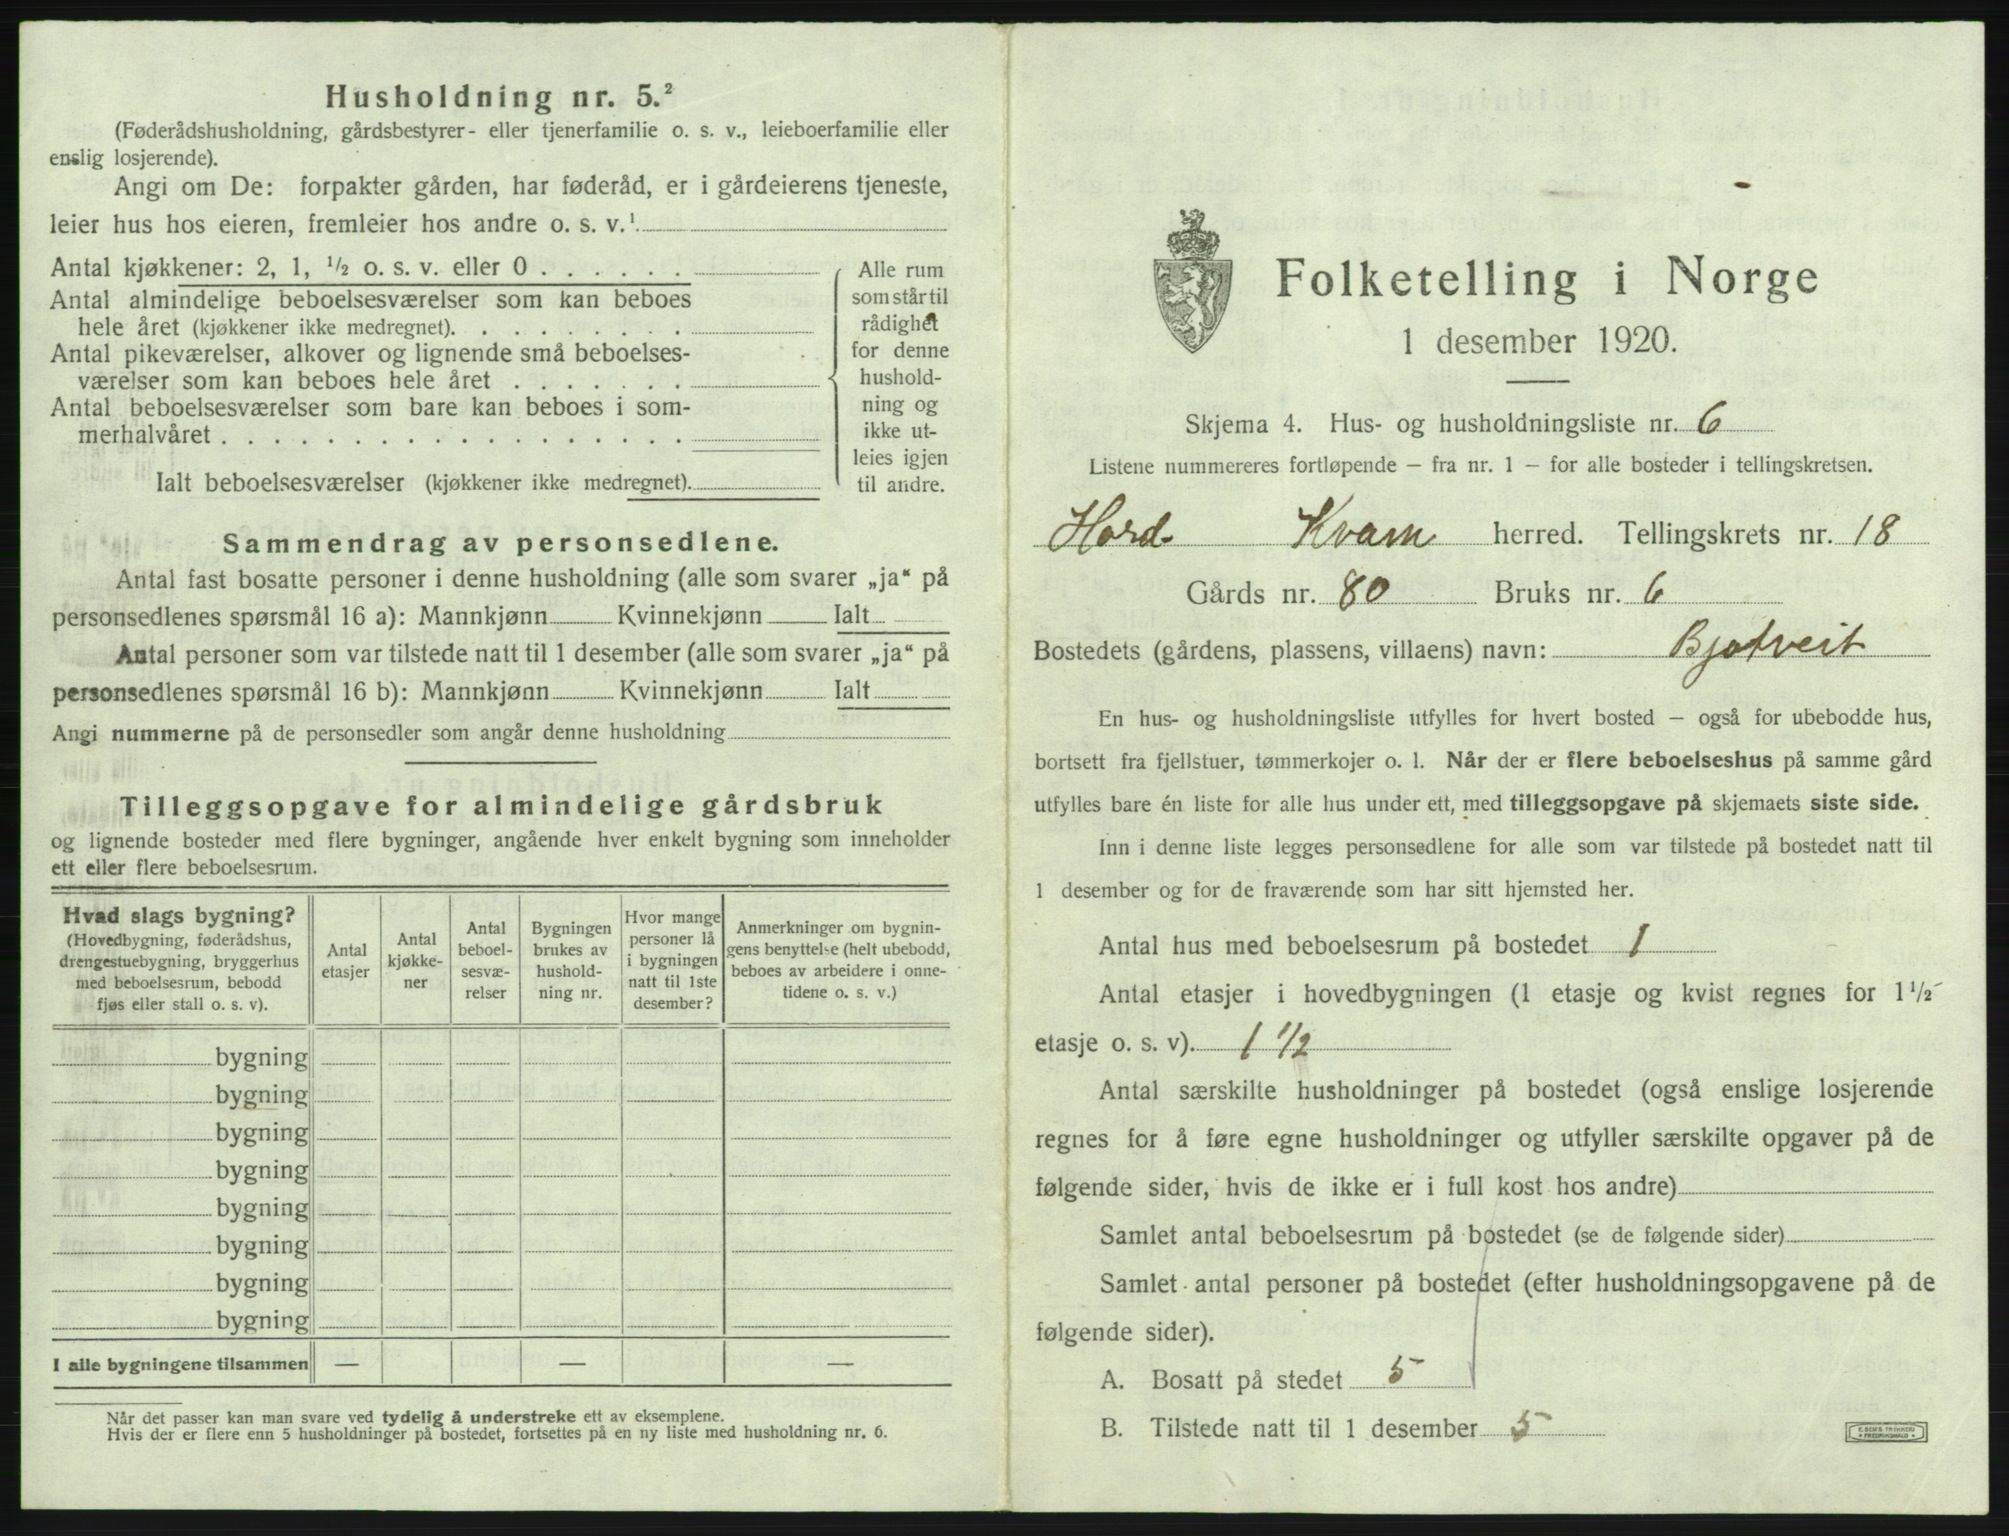 Husholdning nr. 5.²
(Føderådshusholdning, gårdsbestyrer- eller tjenerfamilie o. s. v., leieboerfamilie eller
enslig losjerende).
Angi om De: forpakter gården, har føderåd, er i gårdeierens tjeneste,
leier hus hos eieren, fremleier hos andre o. s. v.¹
Antal kjøkkener: 2, 1, ½ o. s. v. eller 0 . . . . . .
Antal almindelige beboelsesværelser som kan beboes
hele året (kjøkkener ikke medregnet). . . . . . . . .
Antal pikeværelser, alkover og lignende små beboelses-
værelser som kan beboes hele året . . . . . . .
Antal beboelsesværelser som bare kan beboes i som-
merhalvåret . . . . . . . . . . . . . . . . . .
Ialt beboelsesværelser (kjøkkener ikke medregnet).
Alle rum
som står til
rådighet
for denne
hushold-
ning og
ikke ut-
leies igjen
til andre.
Sammendrag av personsedlene.
Antal fast bosatte personer i denne husholdning (alle som svarer „ja“ på
personsedlenes spørsmål 16 a): Mannkjønn Kvinnekjønn Ialt
Antal personer som var tilstede natt til 1 desember (alle som svarer „ja“ på
personsedlenes spørsmål 16 b): Mannkjønn Kvinnekjønn Ialt
Angi nummerne på de personsedler som angår denne husholdning
Tilleggsopgave for almindelige gårdsbruk
og lignende bosteder med flere bygninger, angående hver enkelt bygning som inneholder
ett eller flere beboelsesrum.
Hvad slags bygning?
(Hovedbygning, føderådshus,
drengestuebygning, bryggerhus
med beboelsesrum, bebodd
fjøs eller stall o. s. v).
Antal
etasjer
Antal
kjøkke-
ner
Antal
beboel-
sesvæ-
relser
Bygningen
brukes av
hushold-
ning nr.
Hvor mange
personer lå
i bygningen
natt til 1ste
desember?
Anmerkninger om bygnin-
gens benyttelse (helt ubebodd,
beboes av arbeidere i onne-
tidene o. s. v.)
bygning
bygning
bygning
bygning
bygning
bygning
bygning
bygning
I alle bygningene tilsammen — — —
Når det passer kan man svare ved tydelig å understreke ett av eksemplene.
Hvis der er flere enn 5 husholdninger på bostedet, fortsettes på en ny liste med husholdning nr. 6.
Folketelling i Norge
1 desember 1920.
Skjema 4. Hus- og husholdningsliste nr. 6
Listene nummereres fortløpende — fra nr. 1 — for alle bosteder i tellingskretsen.
Hord. Kvam herred. Tellingskrets nr. 18
Gårds nr. 80 Bruks nr. 6
Bostedets (gårdens, plassens, villaens) navn: Bjotveit
En hus- og husholdningsliste utfylles for hvert bosted — også for ubebodde hus,
bortsett fra fjellstuer, tømmerkojer o. l. Når der er flere beboelseshus på samme gård
utfylles bare én liste for alle hus under ett, med tilleggsopgave på skjemaets siste side.
Inn i denne liste legges personsedlene for alle som var tilstede på bostedet natt til
1 desember og for de fraværende som har sitt hjemsted her.
Antal hus med beboelsesrum på bostedet 1
Antal etasjer i hovedbygningen (1 etasje og kvist regnes for 1½
etasje o. s. v). 1 ½
Antal særskilte husholdninger på bostedet (også enslige losjerende
regnes for å føre egne husholdninger og utfyller særskilte opgaver på de
følgende sider, hvis de ikke er i full kost hos andre)
Samlet antal beboelsesrum på bostedet (se de følgende sider)
Samlet antal personer på bostedet (efter husholdningsopgavene på de
følgende sider).
A. Bosatt på stedet 5
B. Tilstede natt til 1 desember 5